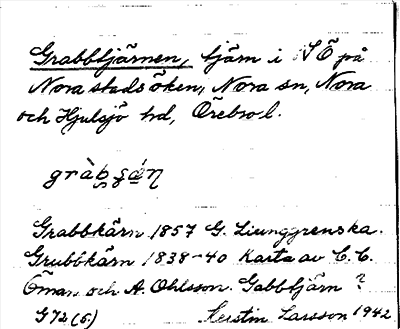 Grabbtjärnen, tjärn i SÖ på
Nora stads öken, Nora sn, Nora
och Hjulsjö hd, Örebro l.
Grabbkärn 1857 G. Ljunggrenska.
Grubbkärn 1838-40 Karta av C. C.
Öman och A. Ohlsson. Gabbtjärn ?
G72(5) Kerstin Larsson 1942